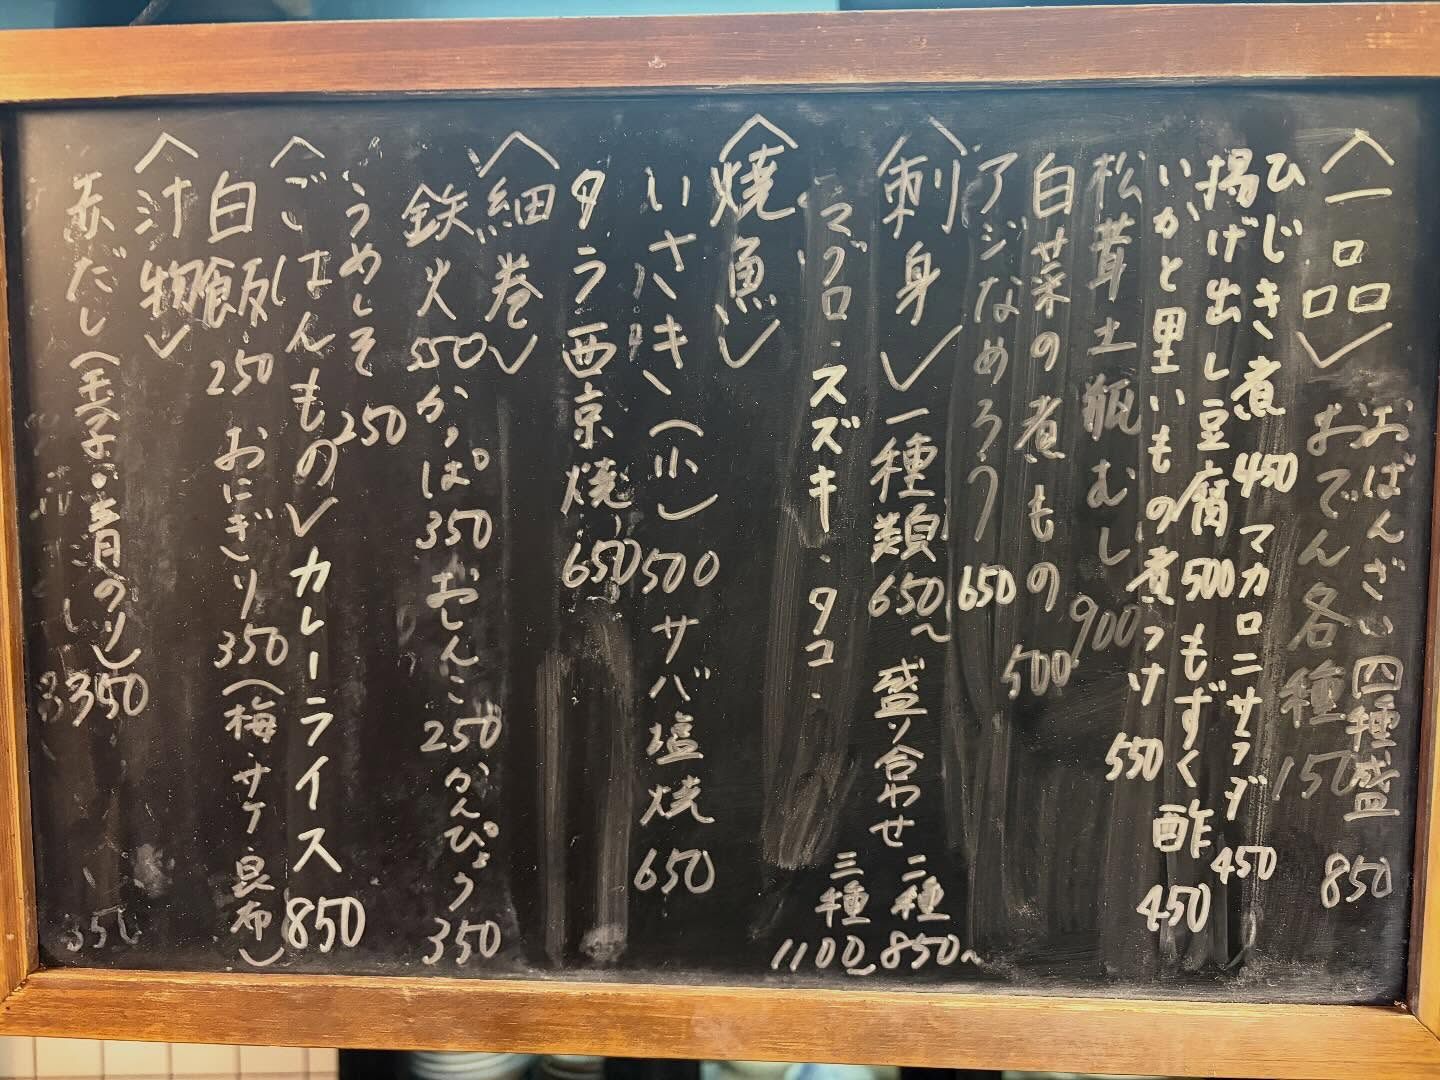 〈一品〉おばんざい四種盛 850
おでん各種 150
ひじき煮 450 マカロニサラダ 450
揚げ出し豆腐 500 もずく酢 450
いかと里いもの煮つけ 550
松茸土瓶むし 900
白菜の煮もの 500
アジなめろう 650
〈刺身〉一種類 650〜 盛り合わせ 二種 850〜
三種 1100〜
マグロ・スズキ・タコ・
〈焼魚〉
いさき(小) 500 サバ塩焼 650
タラ西京焼 650
〈細巻〉
鉄火 550 かっぱ 350 おしんこ 250 かんぴょう 350
うめしそ 250
〈ごはんもの〉カレーライス 850
白飯 250 おにぎり 350(梅・サケ・昆布)
〈汁物〉
赤だし(玉子・青のり) 350